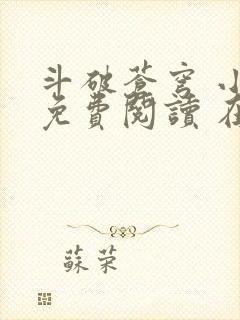 斗破蒼穹 小
免費閱讀 在
蘇荣